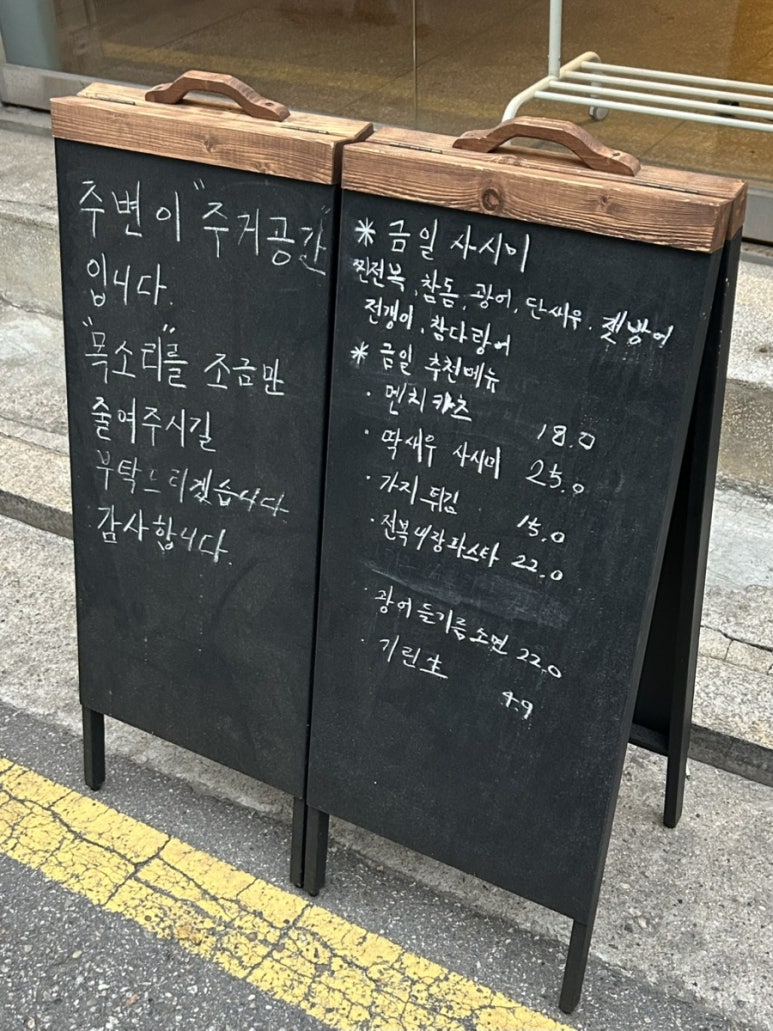 주변이 "주거공간"
입니다.
"목소리"를 조금만
줄여주시길
부탁드리겠습니다.
감사합니다.
* 금일 사시미
찐전복, 참돔, 광어, 단새우, 잿방어
전갱이, 참다랑어
* 금일 추천메뉴
· 멘치카츠 18.0
· 딱새우 사시미 25.0
· 가지튀김 15.0
· 전복내장파스타 22.0
· 광어들기름소면 22.0
· 기린生 9.9